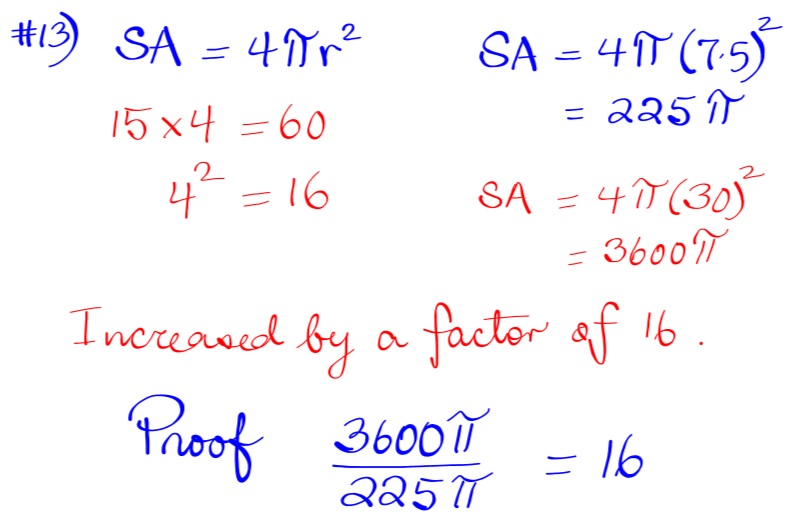 #13) SA = 4πr² SA = 4π(7.5)²
15 × 4 = 60 = 225π
4² = 16 SA = 4π(30)²
= 3600π
Increased by a factor of 16.
Proof 3600π / 225π = 16